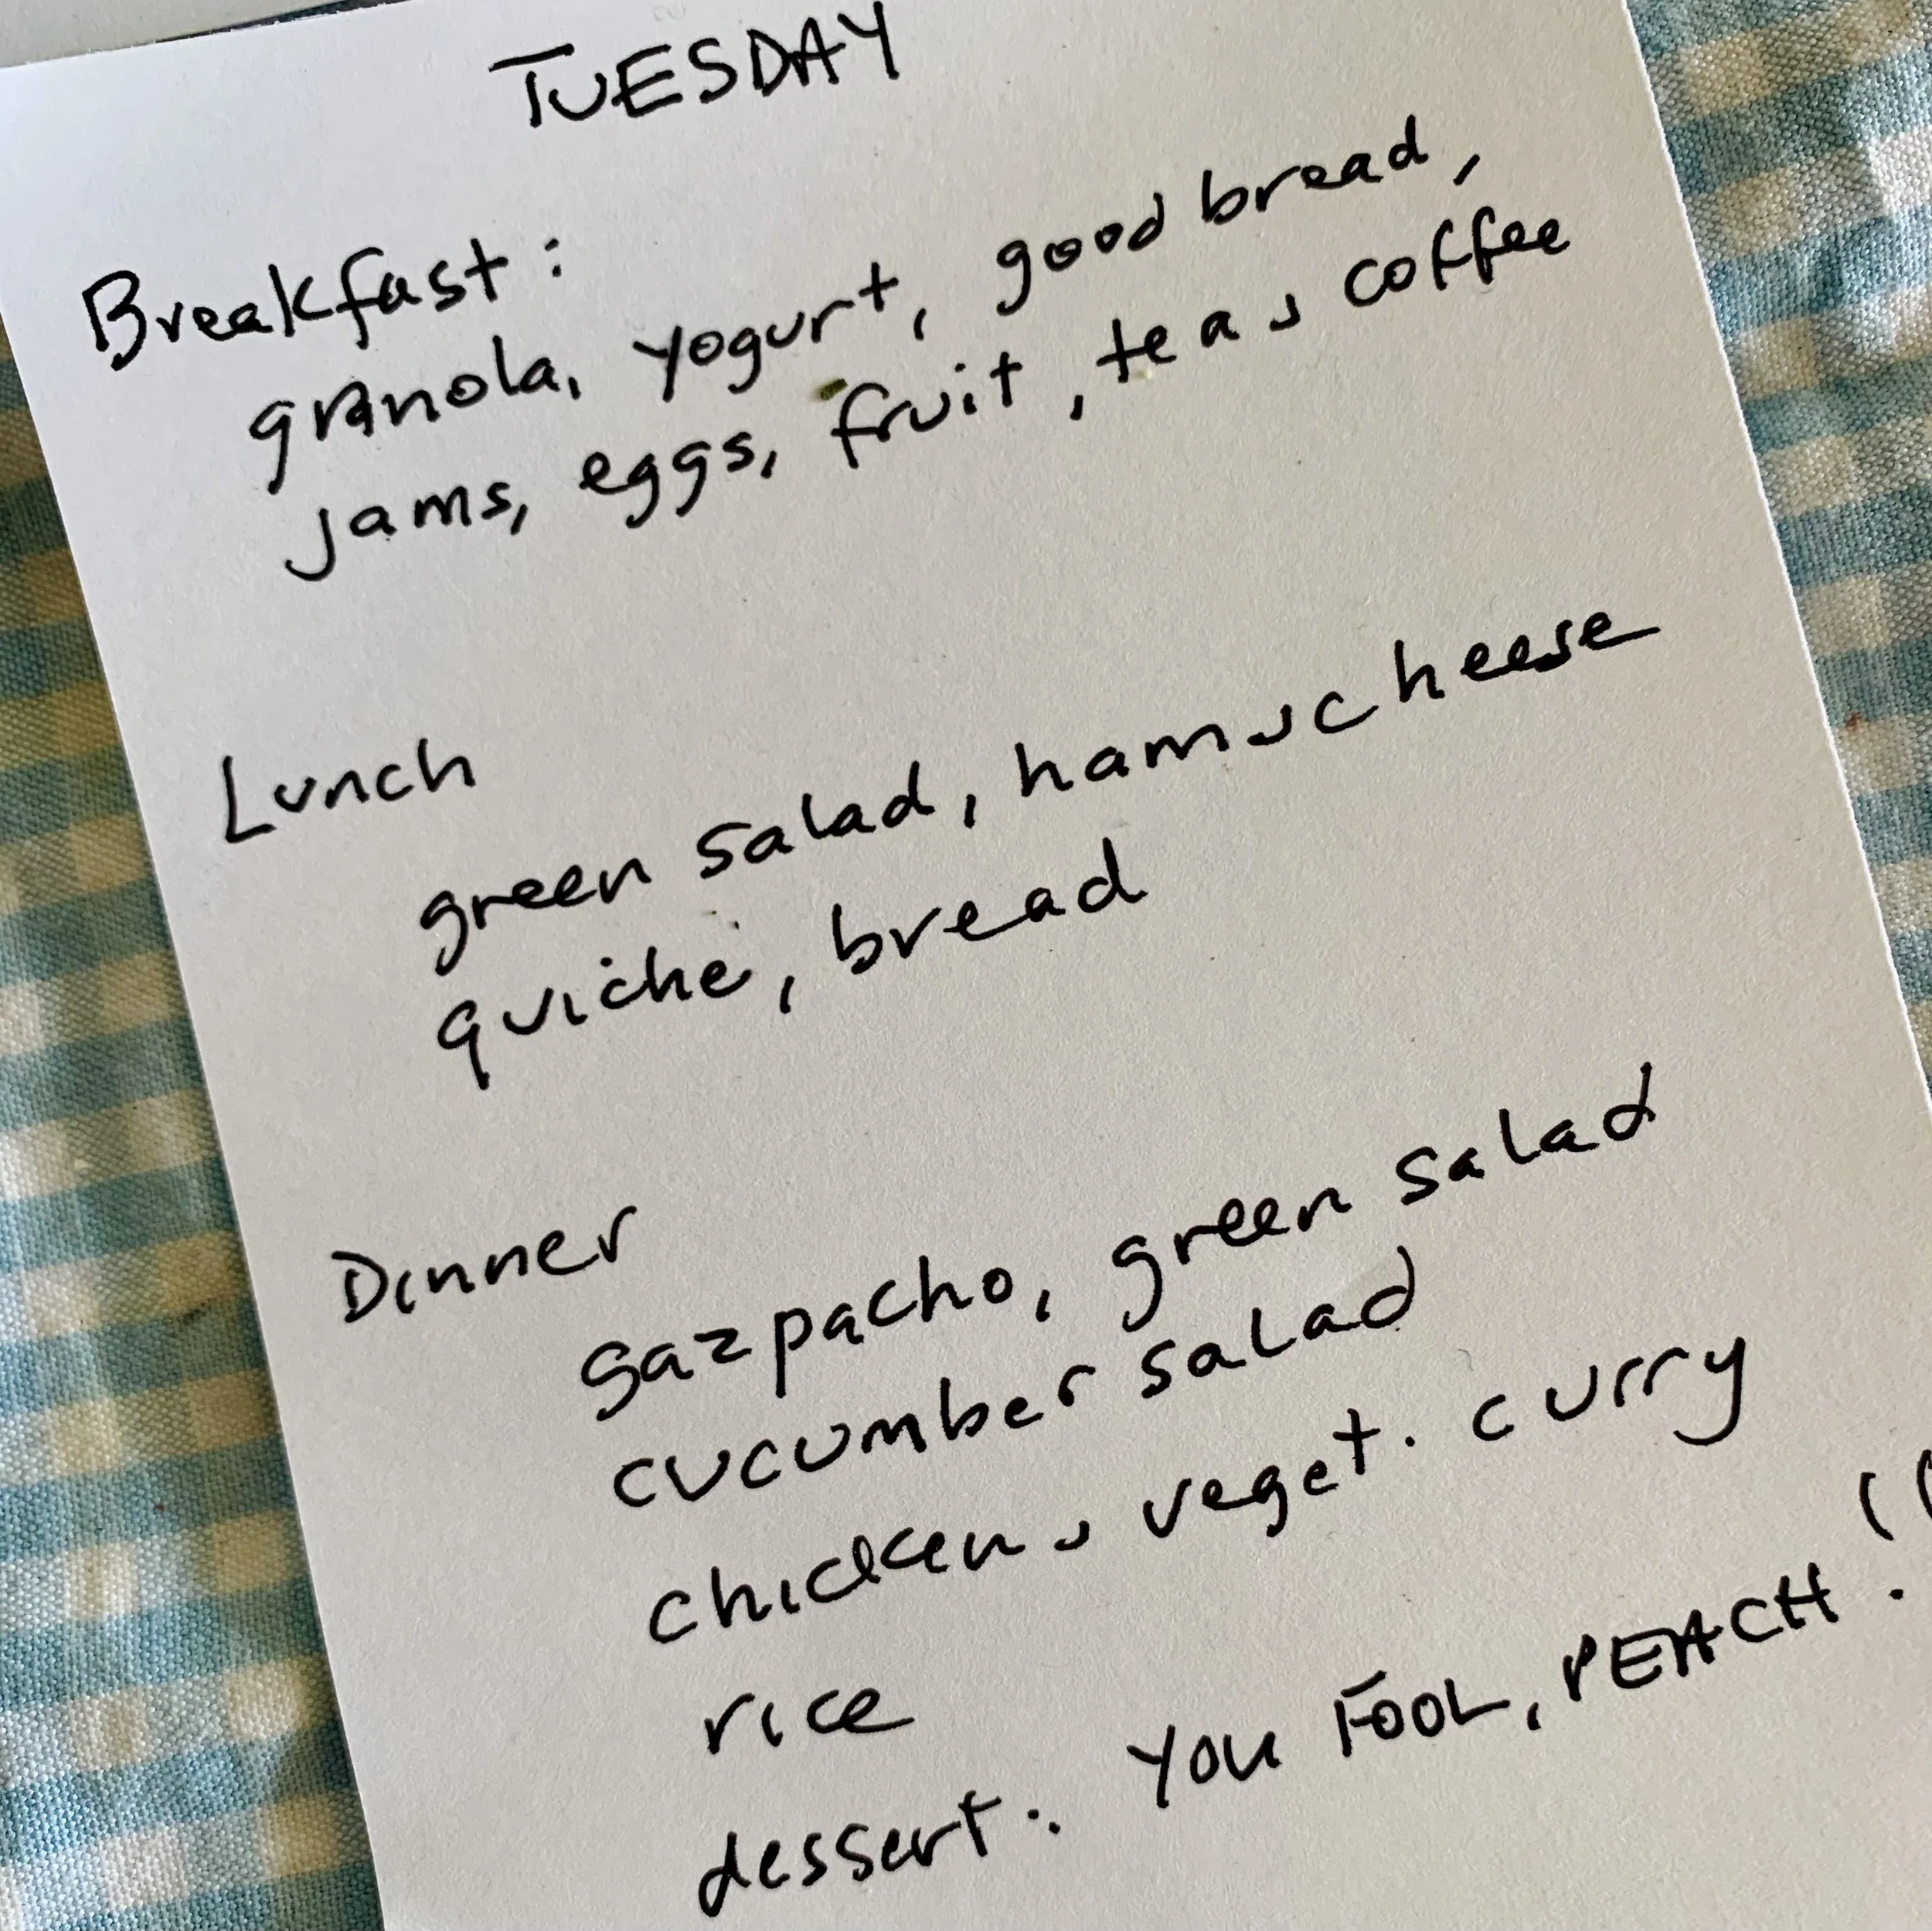 TUESDAY
Breakfast:
granola, yogurt, good bread,
jams, eggs, fruit, tea & coffee
Lunch
green salad, ham & cheese
quiche, bread
Dinner
gazpacho, green salad
cucumber salad
chicken & veget. curry
rice
dessert: YOU FOOL, PEACH.